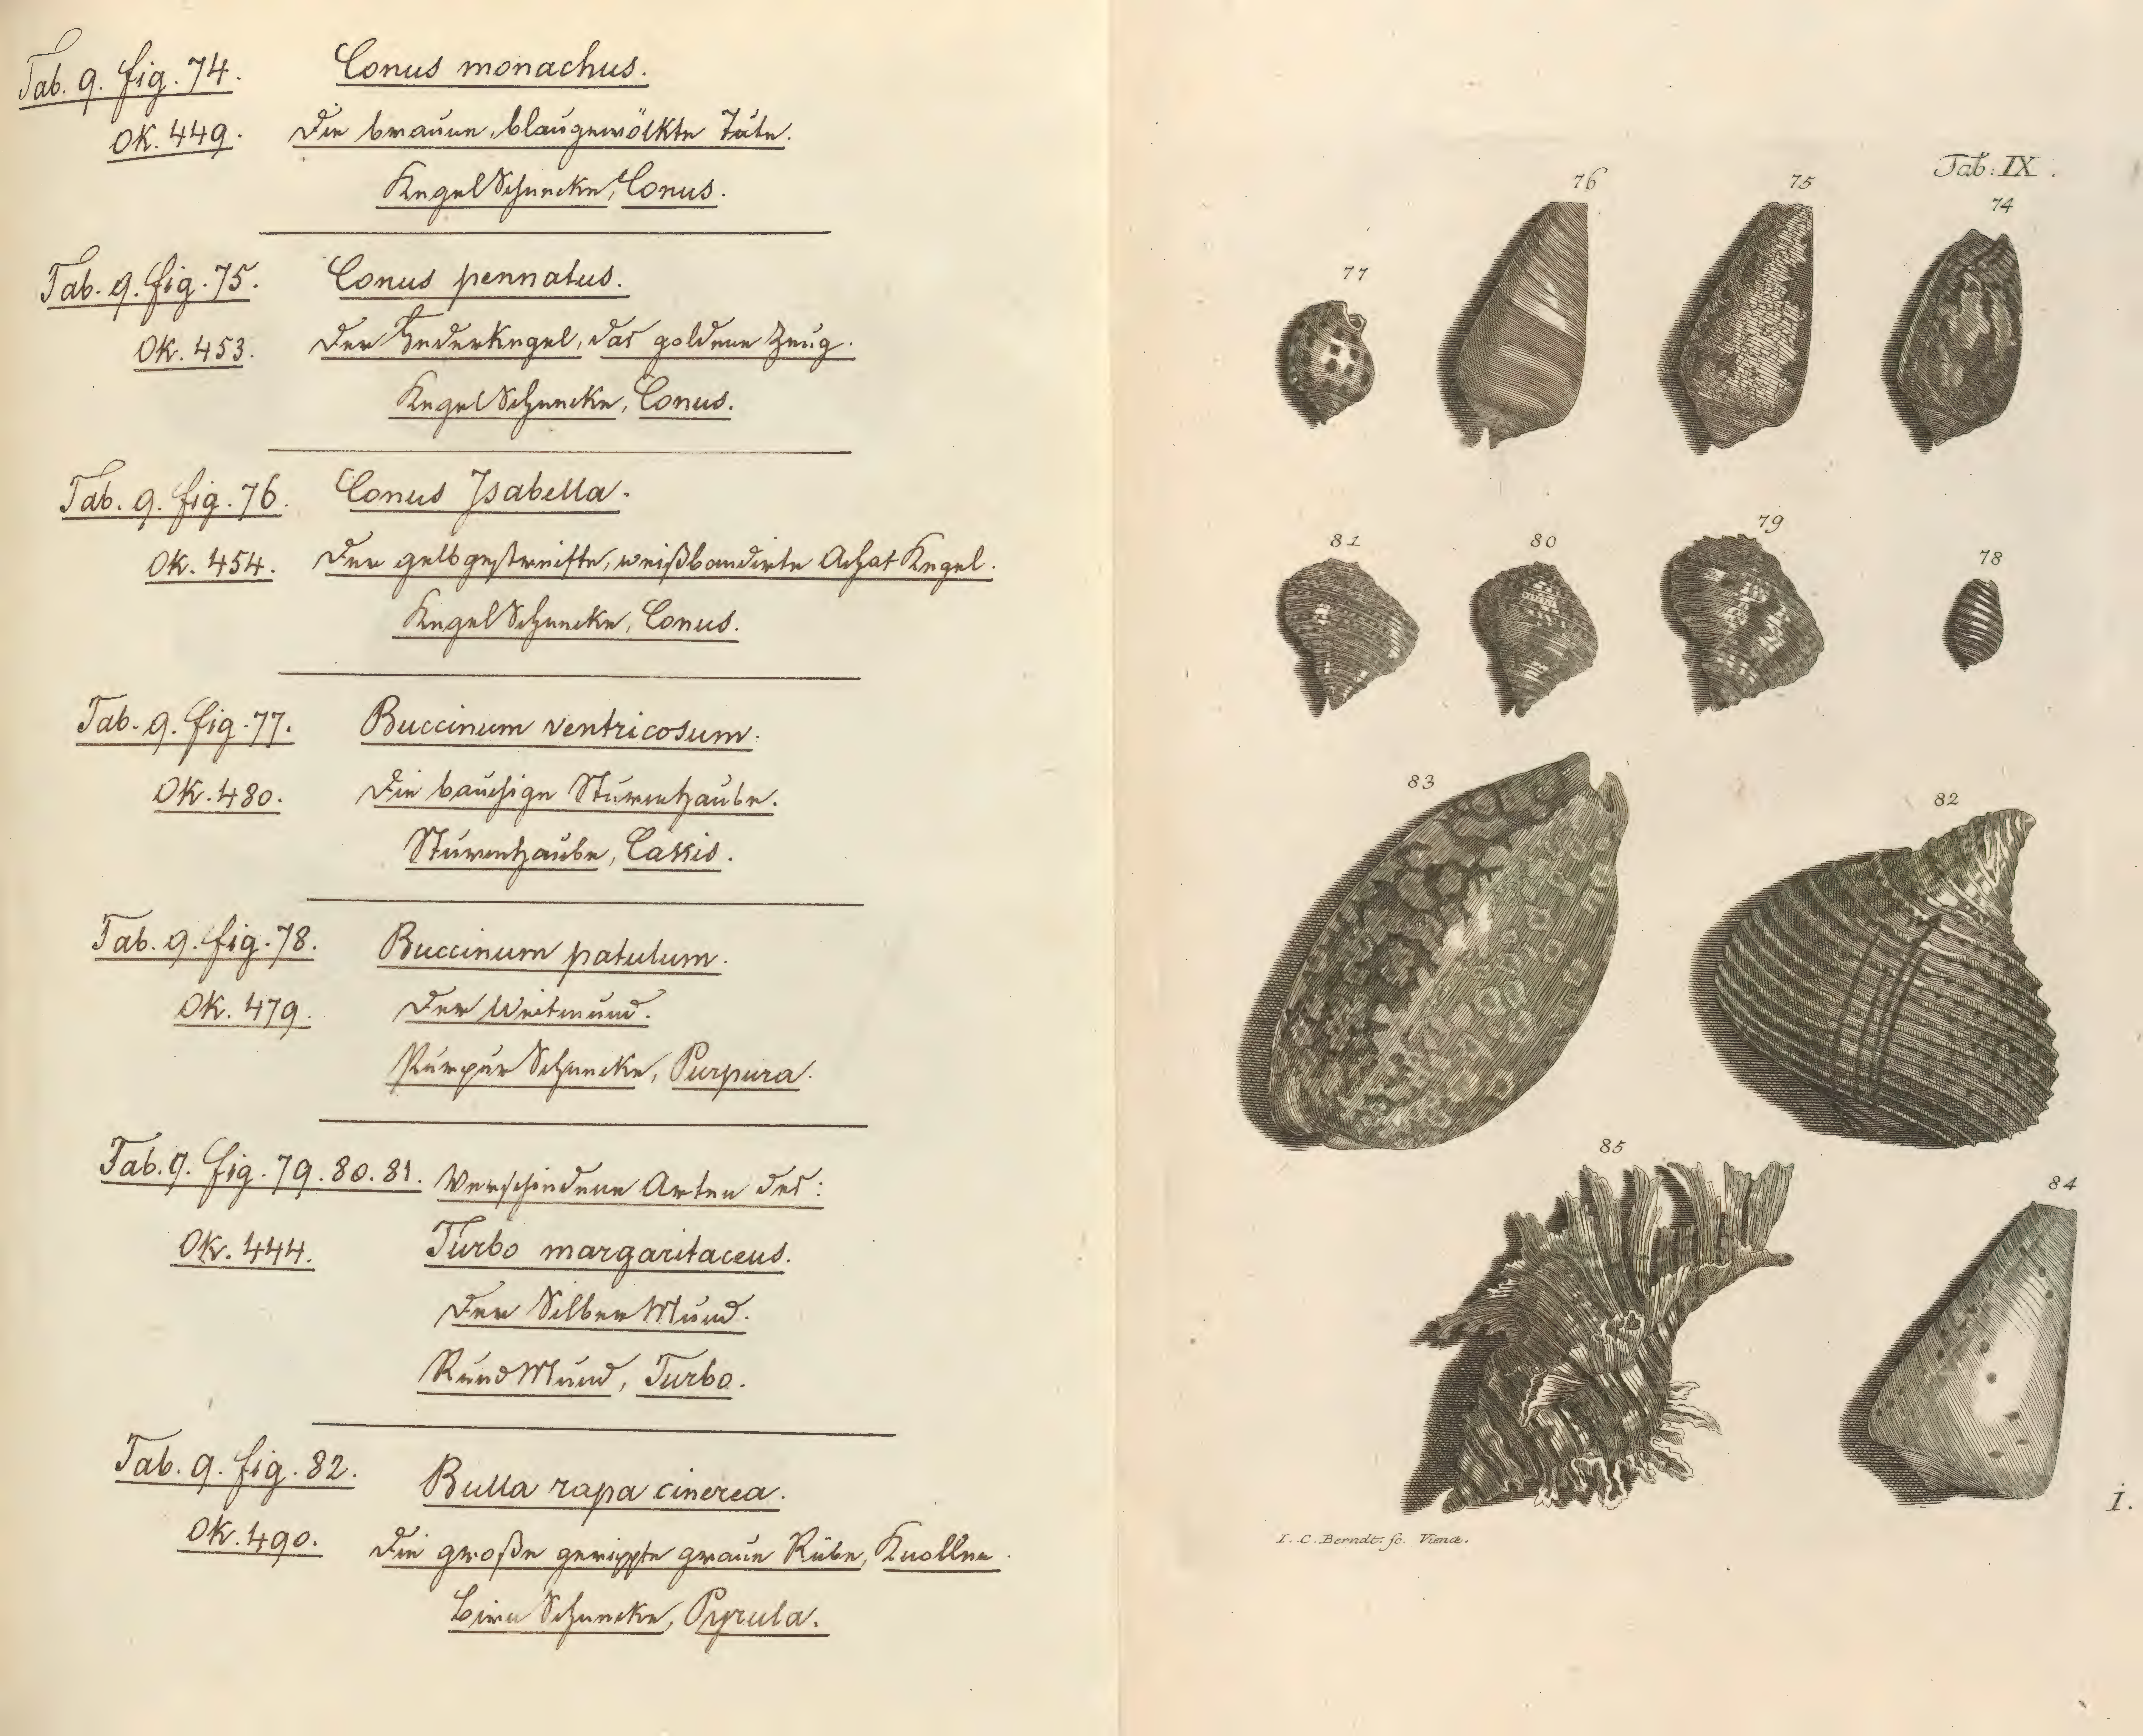 Tab. 9. fig. 74. Conus monachus.
OK. 449. Die braune, blaugewölkte Tute.
KegelSchnecke, Conus.
Tab. 9. fig. 75. Conus pennatus.
OK. 453. Der Federkegel, das goldene Zeug.
KegelSchnecke, Conus.
Tab. 9. fig. 76. Conus Isabella.
OK. 454. Der gelbgestreifte, weißbandirte AchatKegel.
KegelSchnecke, Conus.
Tab. 9. fig. 77. Buccinum ventricosum.
OK. 480. Die bauchige Sturmhaube.
Sturmhaube, Cassis.
Tab. 9. fig. 78. Buccinum patulum.
OK. 479. Der Weitmund.
PurpurSchnecke, Purpura.
Tab. 9. fig. 79. 80. 81. Verschiedene Arten des:
OK. 444. Turbo margaritaceus.
Der SilberMund.
RundMund, Turbo.
Tab. 9. fig. 82. Bulla rapa cinerea.
OK. 490. Die große gerippte graue Rübe, Knollen
BirnSchnecke, Pyrula.
Tab: IX.
76 75 74
77
81 80 79 78
83 82
85 84
I. C. Berndt. sc. Vienæ.
I.